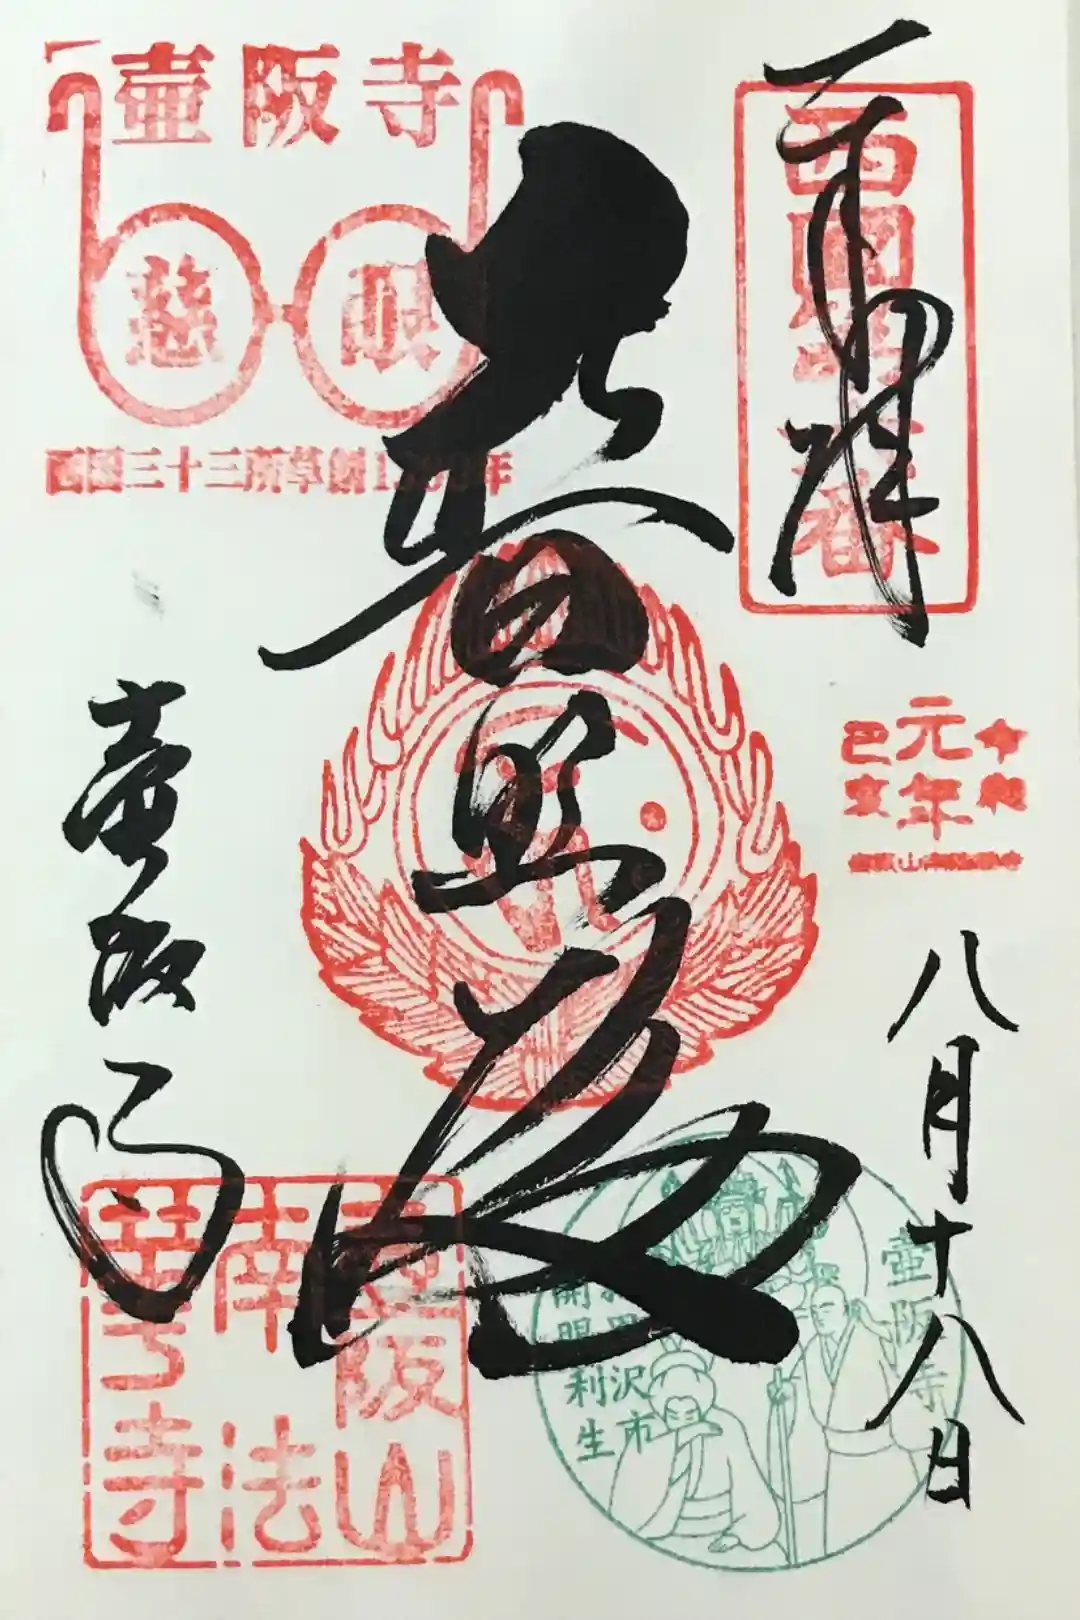 奉拝
西国第六番
普照殿
令和
元年
己亥
八月十八日
壷阪寺
壷阪寺
慈眼
西国三十三所草創1300年
壷阪山
南法
華寺
壷阪寺
沢市
開眼利生